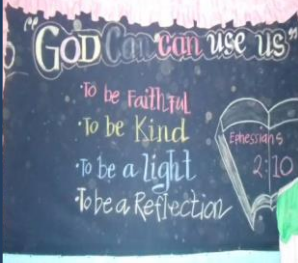 "GOD Can can use us"
·To be Faithful
·To be Kind
·To be a light
·To be a Reflection
Ephessians
2:10